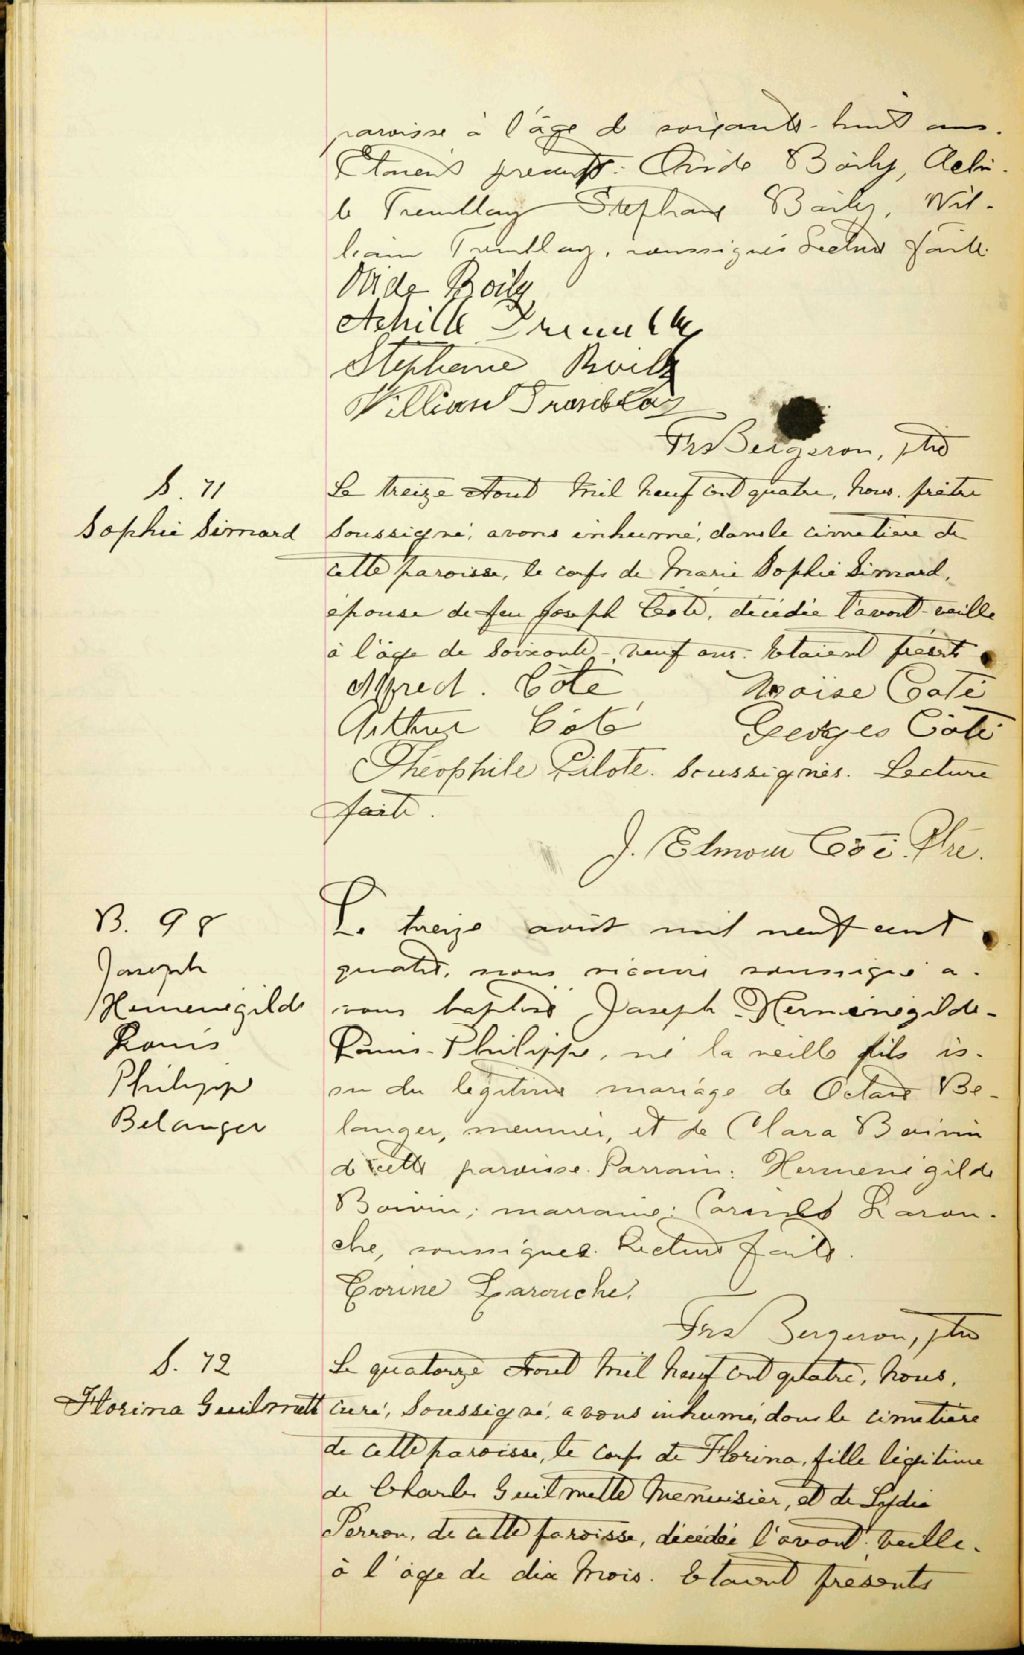 paroisse à l'âge de soixante-huit ans.
Etaient présents: Ovide Boily, Achil-
le Tremblay Stéphane Boily, Wil-
liam Tremblay, soussignés Lecture faite.
Ovide Boily
Achille Tremblay
Stéphane Boily
William Tremblay
Frs Bergeron, ptre
S. 71
Sophie Simard
Le treize Aout mil neuf cent quatre, nous, prêtre
soussigné, avons inhumé, dans le cimetière de
cette paroisse, le corps de Marie Sophie Simard,
épouse de feu Joseph Coté, décédée l'avant-veille
à l'âge de soixante-neuf ans. Etaient présents
Alfred. Côté Moïse Coté
Arthur Côté Georges Côté
Théophile Pilote. soussignés. Lecture
faite.
J. Elmour Coté. Ptre.
B. 98
Joseph
Hermenégilde
Louis
Philippe
Belanger
Le treize août mil neuf cent
quatre, nous vicaire soussigné a-
vons baptisé Joseph-Hermenégilde-
Louis-Philippe, né la veille fils is-
su du légitime mariage de Octave Be-
langer, meunier, et de Clara Boivin
de cette paroisse. Parrain: Hermenégilde
Boivin; marraine: Corinne Larou-
che, soussignés. Lecture faite.
Corine Larouche.
Frs Bergeron, ptre
S. 72
Florina Guilmett
Le quatorze Aout mil neuf cent quatre, nous,
curé, soussigné, avons inhumé, dans le cimetière
de cette paroisse, le corps de Florina, fille légitime
de Charles Guilmette Menuisier, et de Lydia
Perron, de cette paroisse, décédée l'avant-veille.
à l'âge de dix mois. Etaient présents